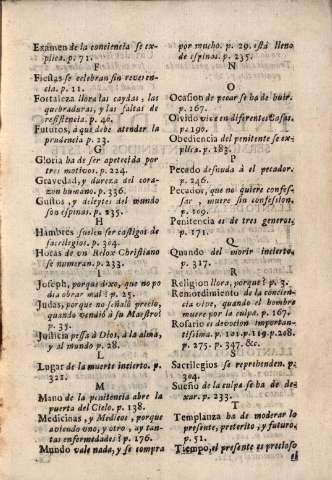 Examen de la conciencia se ex-
plica. p. 71.
F
Fiestas se celebran sin reveren-
cia. p. 11.
Fortaleza llora las caydas, las
quebraduras, y las faltas de
resistencia. p. 40.
Futuros, à què debe atender la
prudencia p. 23.
G
Gloria ha de ser apetecida por
tres motivos. p. 224.
Gravedad, y dureza del cora-
zon humano. p. 336.
Gustos, y deleytes del mundo
son espinas. p. 235.
H
Hambres suelen ser castigos de
sacrilegios. p. 304.
Horas de un Relox Christiano
se numeran. p. 233.
I
Joseph, porque dixo, que no po
dia obrar mal? p. 25.
Judas, porque no señalò precio,
quando vendiò à su Maestro?
p. 35.
Justicia pessa à Dios, à la alma,
y al mundo p. 28.
L
Lugar de la muerte incierto. p.
321.
M
Mano de la penitencia abre la
puerta del Cielo. p. 138.
Medicinas, y Medicos, porque
aviendo uno, y otro, ay tan-
tas enfermedades? p. 176.
Mundo vale nada, y se compra
por mucho. p. 29. està lleno
de espinas. p. 235.
N
O
Ocasion de pecar se ha de huir.
p. 167.
Olvido vive en diferentes Casas.
p. 190.
Obediencia del penitente se ex-
plica. p. 183.
P
Pecado desnuda à el pecador.
p. 246.
Pecador, que no quiere confes-
sar, muere sin confession.
p. 109.
Penitencia es de tres generos,
p. 171.
Q
Quando del morir incierto.
p. 317.
R
Religion llora, porque? p. 3.
Remordimiento de la concien-
cia vivo, quando el hombre
muere por la culpa. p. 167.
Rosario es devocion importan-
tissima. p. 101. p. 119. p. 208.
p. 275. p. 347. &c.
S
Sacrilegios se reprehenden. p.
304.
Sueño de la culpa se ha de de-
xar. p. 233.
T
Templanza ha de moderar lo
presente, preterito, y futuro.
p. 51.
Tiempo, el presente es precioso